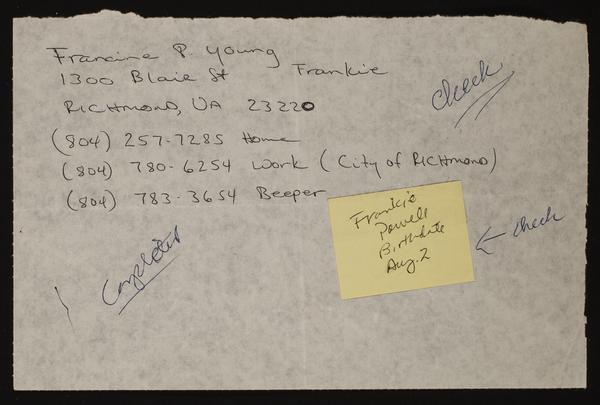 Francine P. Young
1300 Blair St Frankie
RICHMOND, VA 23220
check
(804) 257-7285 Home
(804) 780-6254 Work (City of RICHMOND)
(804) 783-3654 Beeper
Frankie
Powell
Birthdate
Aug. 2
check
Completed